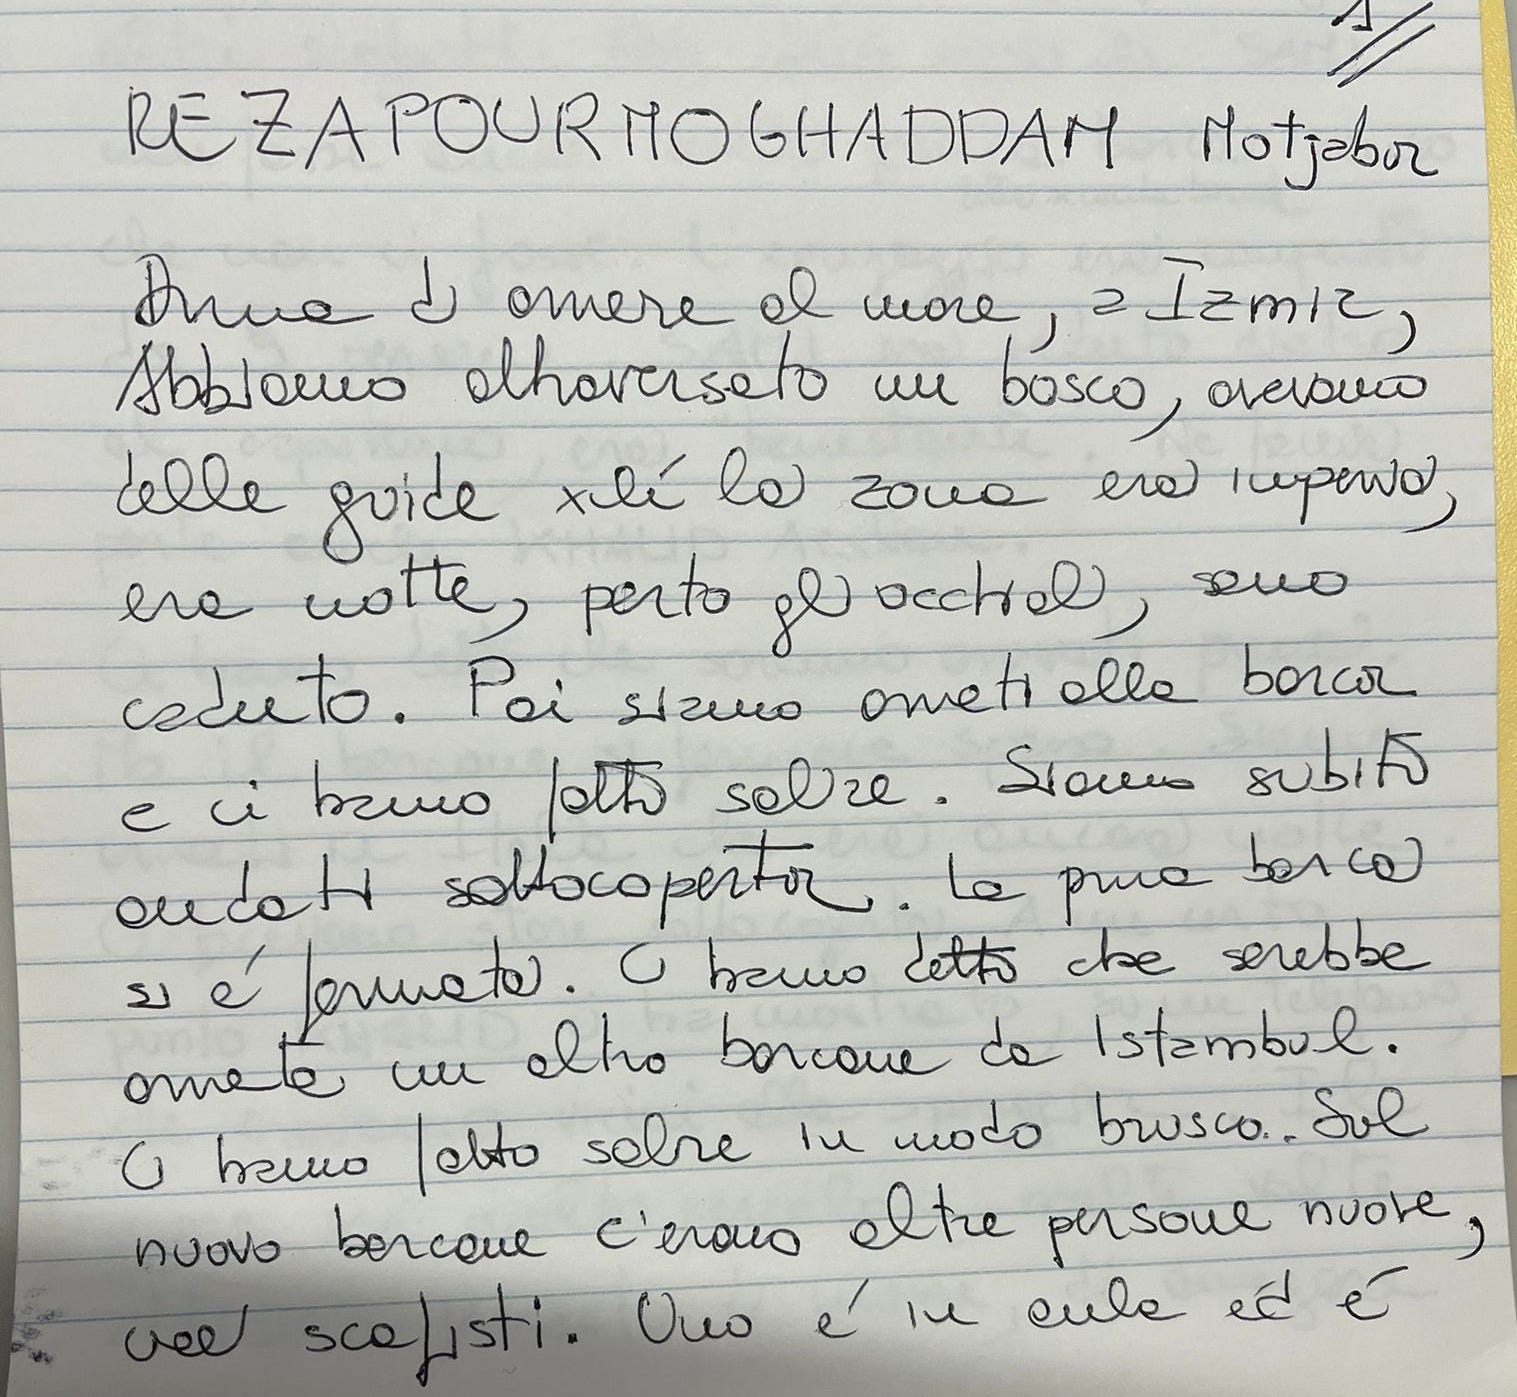 1
REZAPOURMOGHADDAM Motjaba
Prima di arrivare al mare, a Izmir,
Abbiamo attraversato un bosco, avevamo
delle guide xché la zona era impervia,
era notte, porto gli occhiali, sono
caduto. Poi siamo arrivati alla barca
e ci hanno fatto salire. Siamo subito
andati sottocoperta. La prima barca
si è fermata. Ci hanno detto che sarebbe
arrivata un altro barcone da Istambul.
Ci hanno fatto salire in modo brusco. Sul
nuovo barcone c'erano altre persone nuove,
scafisti. Uno è in aula ed è